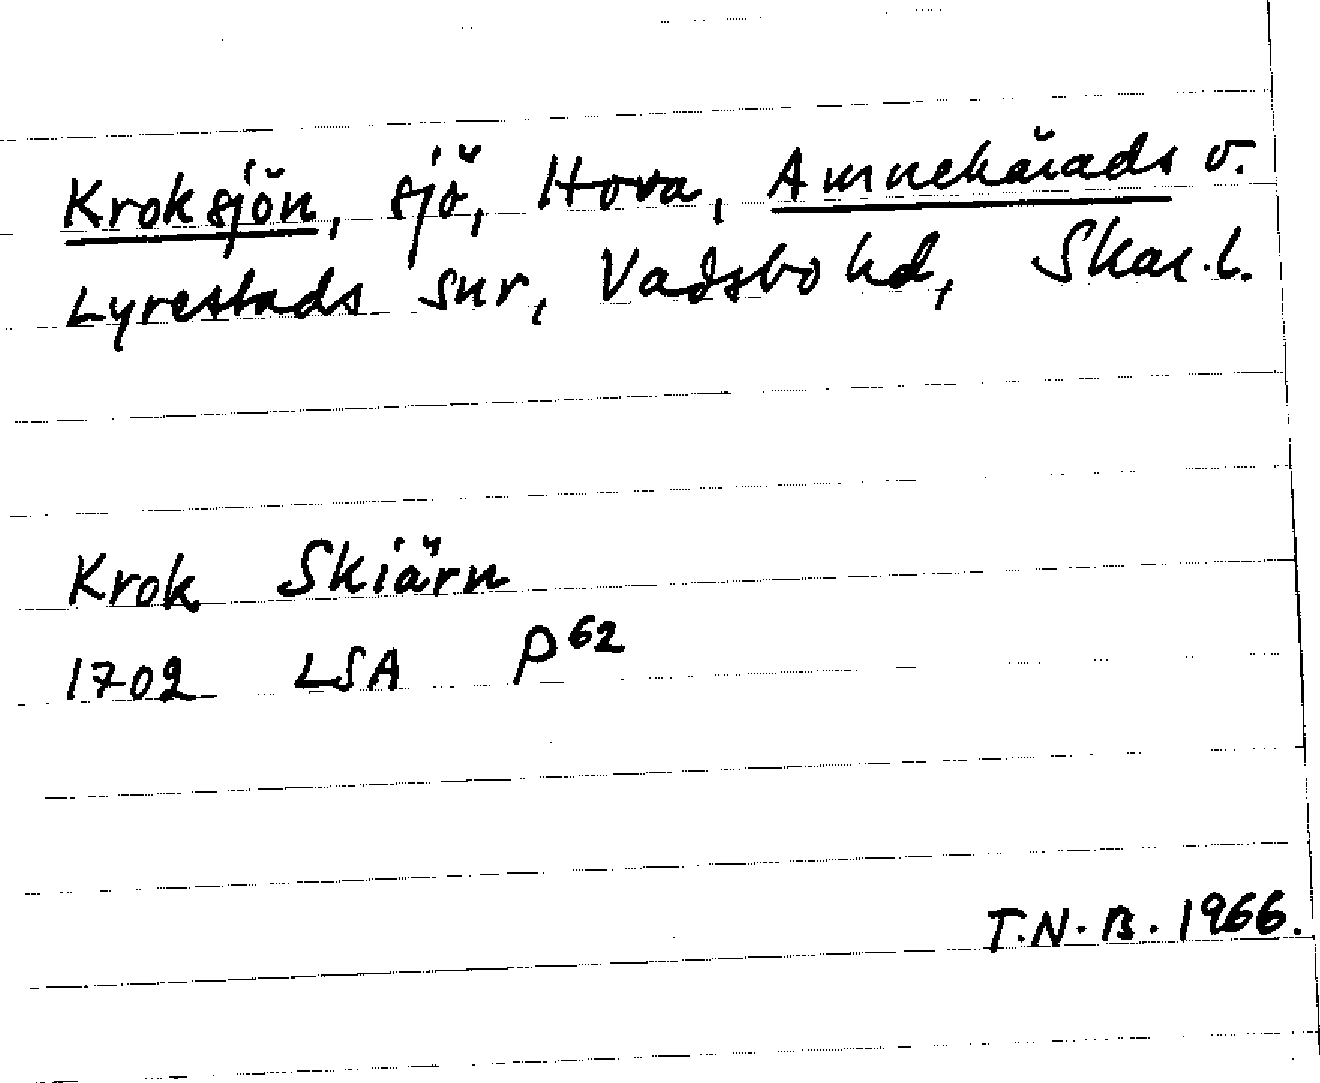 Kroksjön, sjö, Hova, Amnehärads o.
Lyrestads snr, Vadsbo hd, Skar. l.
Krok Skiärn
1702 LSA P62
T.N.B. 1966.